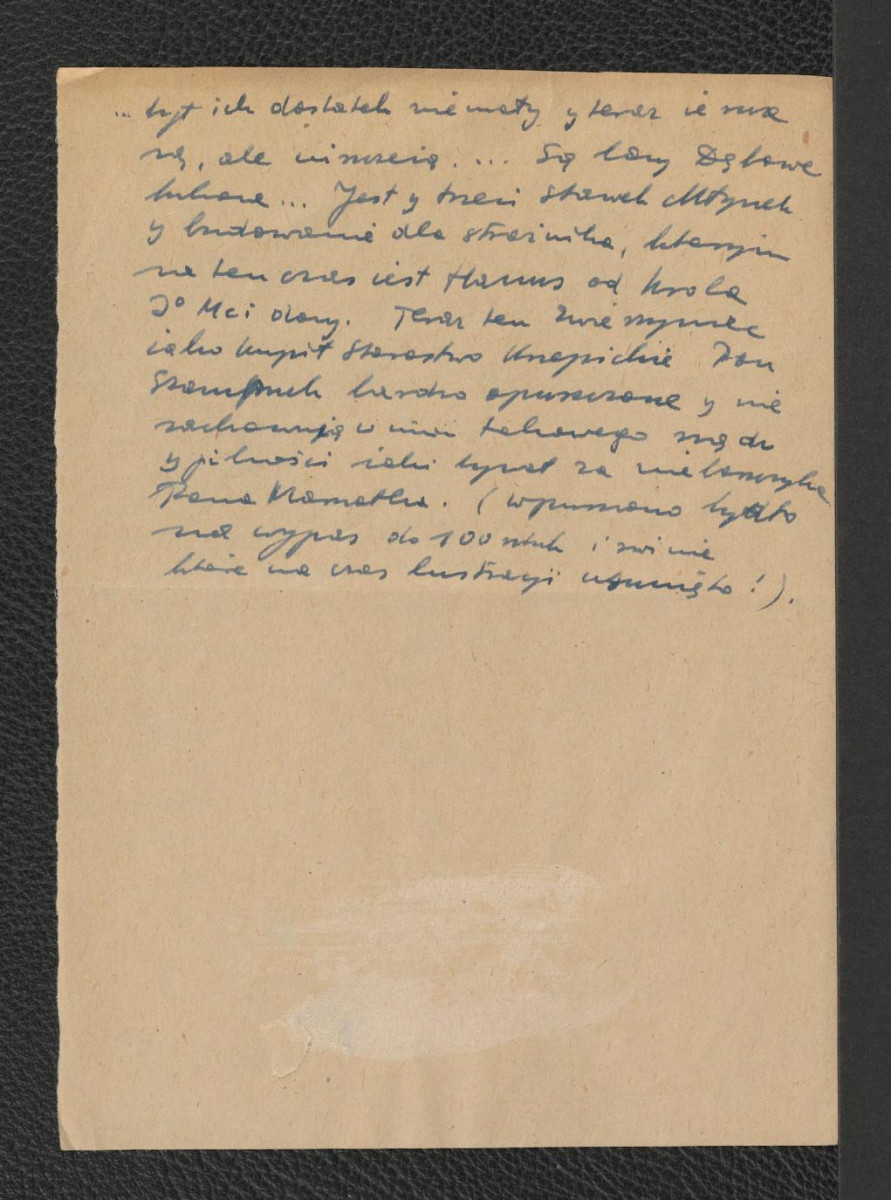 ... był ich dostatek niemały y teraz ie
są, ale niszczeią .... Są lasy Dębowe
bukowe ... Jest y trzeci stawek Młynek
y budowanie dla strażnika, którym
na ten czas iest Hanus od Krola
Jº Mci dany. Teraz ten Zwierzyniec
iako kupił Starostwo Knepickie Pan
bardzo opuszczone y nie
zachowują w nim takowego rządu
y pilności iaki bywał za niebosczyka
Pana . (wpuszczono bydło
na wypas do 100 sztuk i świnie
które na czas lustracji usunięto!).